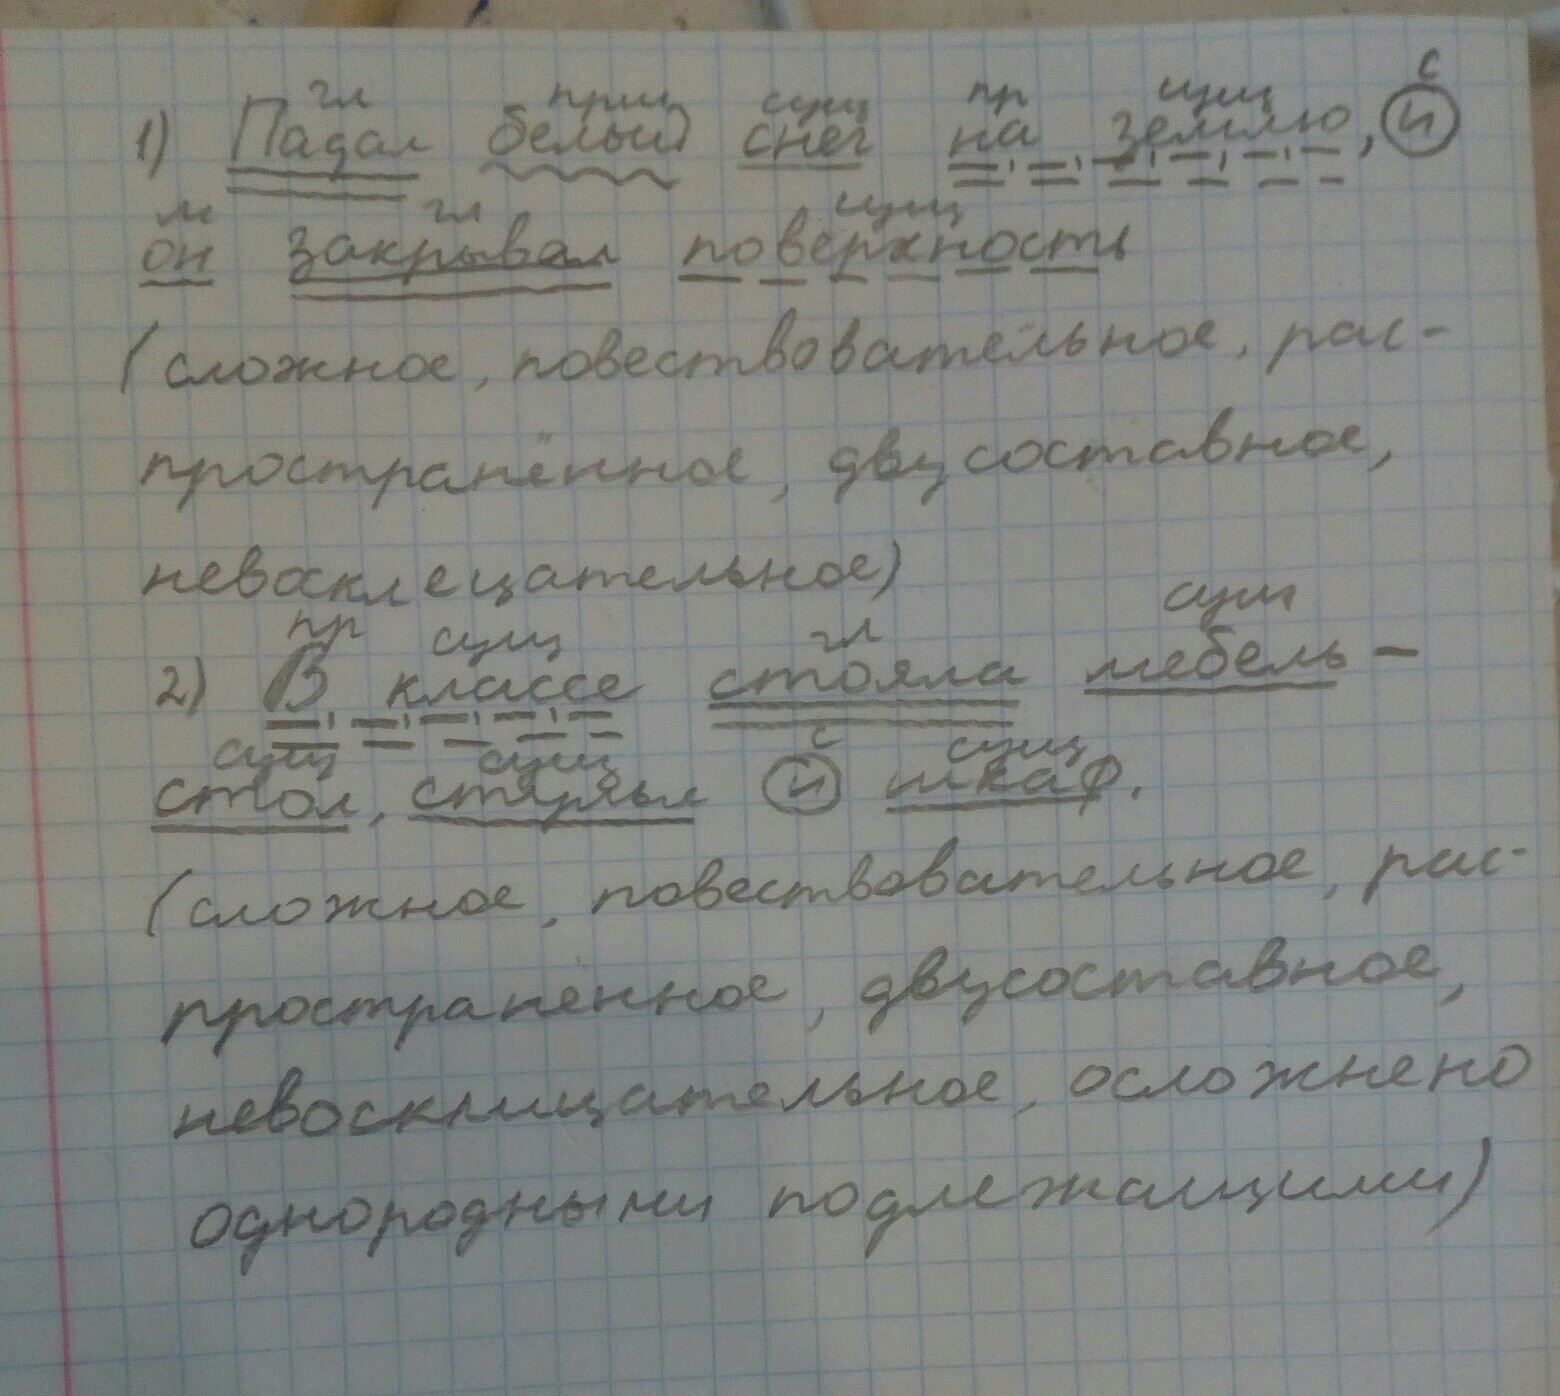 гл прил сущ пр сущ с
1) Падал белый снег на землю, и
м гл сущ
он закрывал поверхность
(сложное, повествовательное, рас-
пространённое, двусоставное,
невосклецательное)
пр сущ гл сущ
2) В классе стояла мебель -
сущ сущ с сущ
стол, стулья и шкаф.
(сложное, повествовательное, рас-
пространенное, двусоставное,
невосклицательное, осложнено
однородными подлежащими)